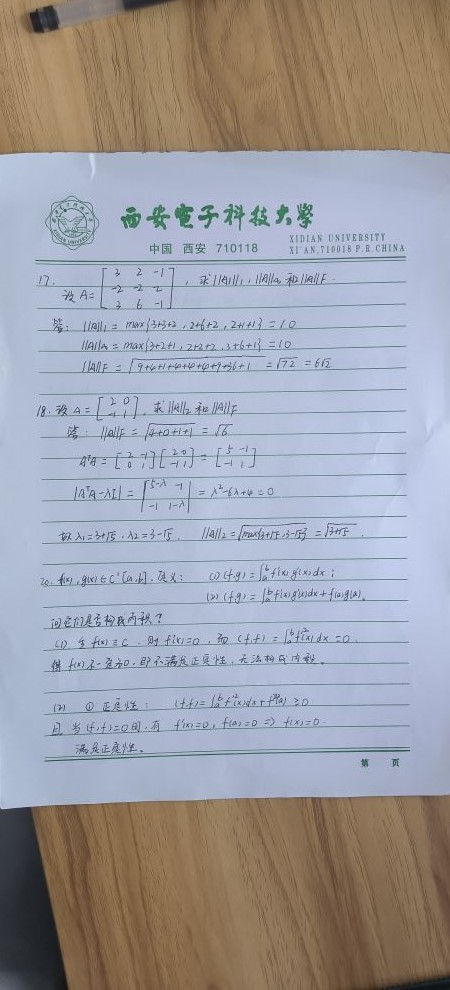 西安电子科技大学
中国 西安 710118
XIDIAN UNIVERSITY
XI'AN,710018 P.R.CHINA
17. 设 A = [3 2 -1; -2 -2 -2; 3 6 -1], 求||A||₁, ||A||∞ 和 ||A||F.
答: ||A||₁ = max{3+3+2, 2+6+2, 2+1+1} = 10
||A||∞ = max{3+2+1, 2+2+2, 3+6+1} = 10
||A||F = √(9+4+1+4+4+4+9+36+1) = √72 = 6√2
18. 设 A = [2 0; -1 1], 求||A||₂ 和 ||A||F
答: ||A||F = √(4+0+1+1) = √6
AᵀA = [2 -1; 0 1][2 0; -1 1] = [5 -1; -1 1]
|AᵀA-λI| = |5-λ -1; -1 1-λ| = λ²-6λ+4 = 0
故 λ₁=3+√5, λ₂=3-√5. ||A||₂ = √(max{3+√5, 3-√5}) = √(3+√5)
20. f(x), g(x) ∈ C'[a,b], 定义: (1) (f,g) = ∫ₐᵇ f'(x)g'(x)dx;
(2) (f,g) = ∫ₐᵇ f'(x)g'(x)dx + f(a)g(a).
问它们是否构成内积?
(1) 令 f(x)≡C, 则 f'(x)=0, 而 (f,f) = ∫ₐᵇ f'²(x)dx = 0.
但 f(x)不一定为0, 即不满足正定性, 无法构成内积.
(2) ① 正定性: (f,f) = ∫ₐᵇ f'²(x)dx + f²(a) ≥ 0
且当(f,f)=0时, 有 f'(x)=0, f(a)=0 ⇒ f(x)=0.
满足正定性。
第 页